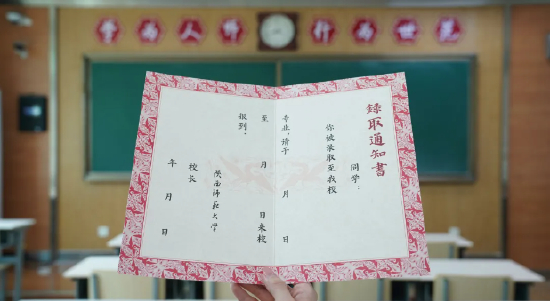 学为人师
行为世范
錄取通知書
同学：
你被录取至我校
专业，请于 月 日
至 月 日来校
报到。
陕西师范大学
校长
年 月 日